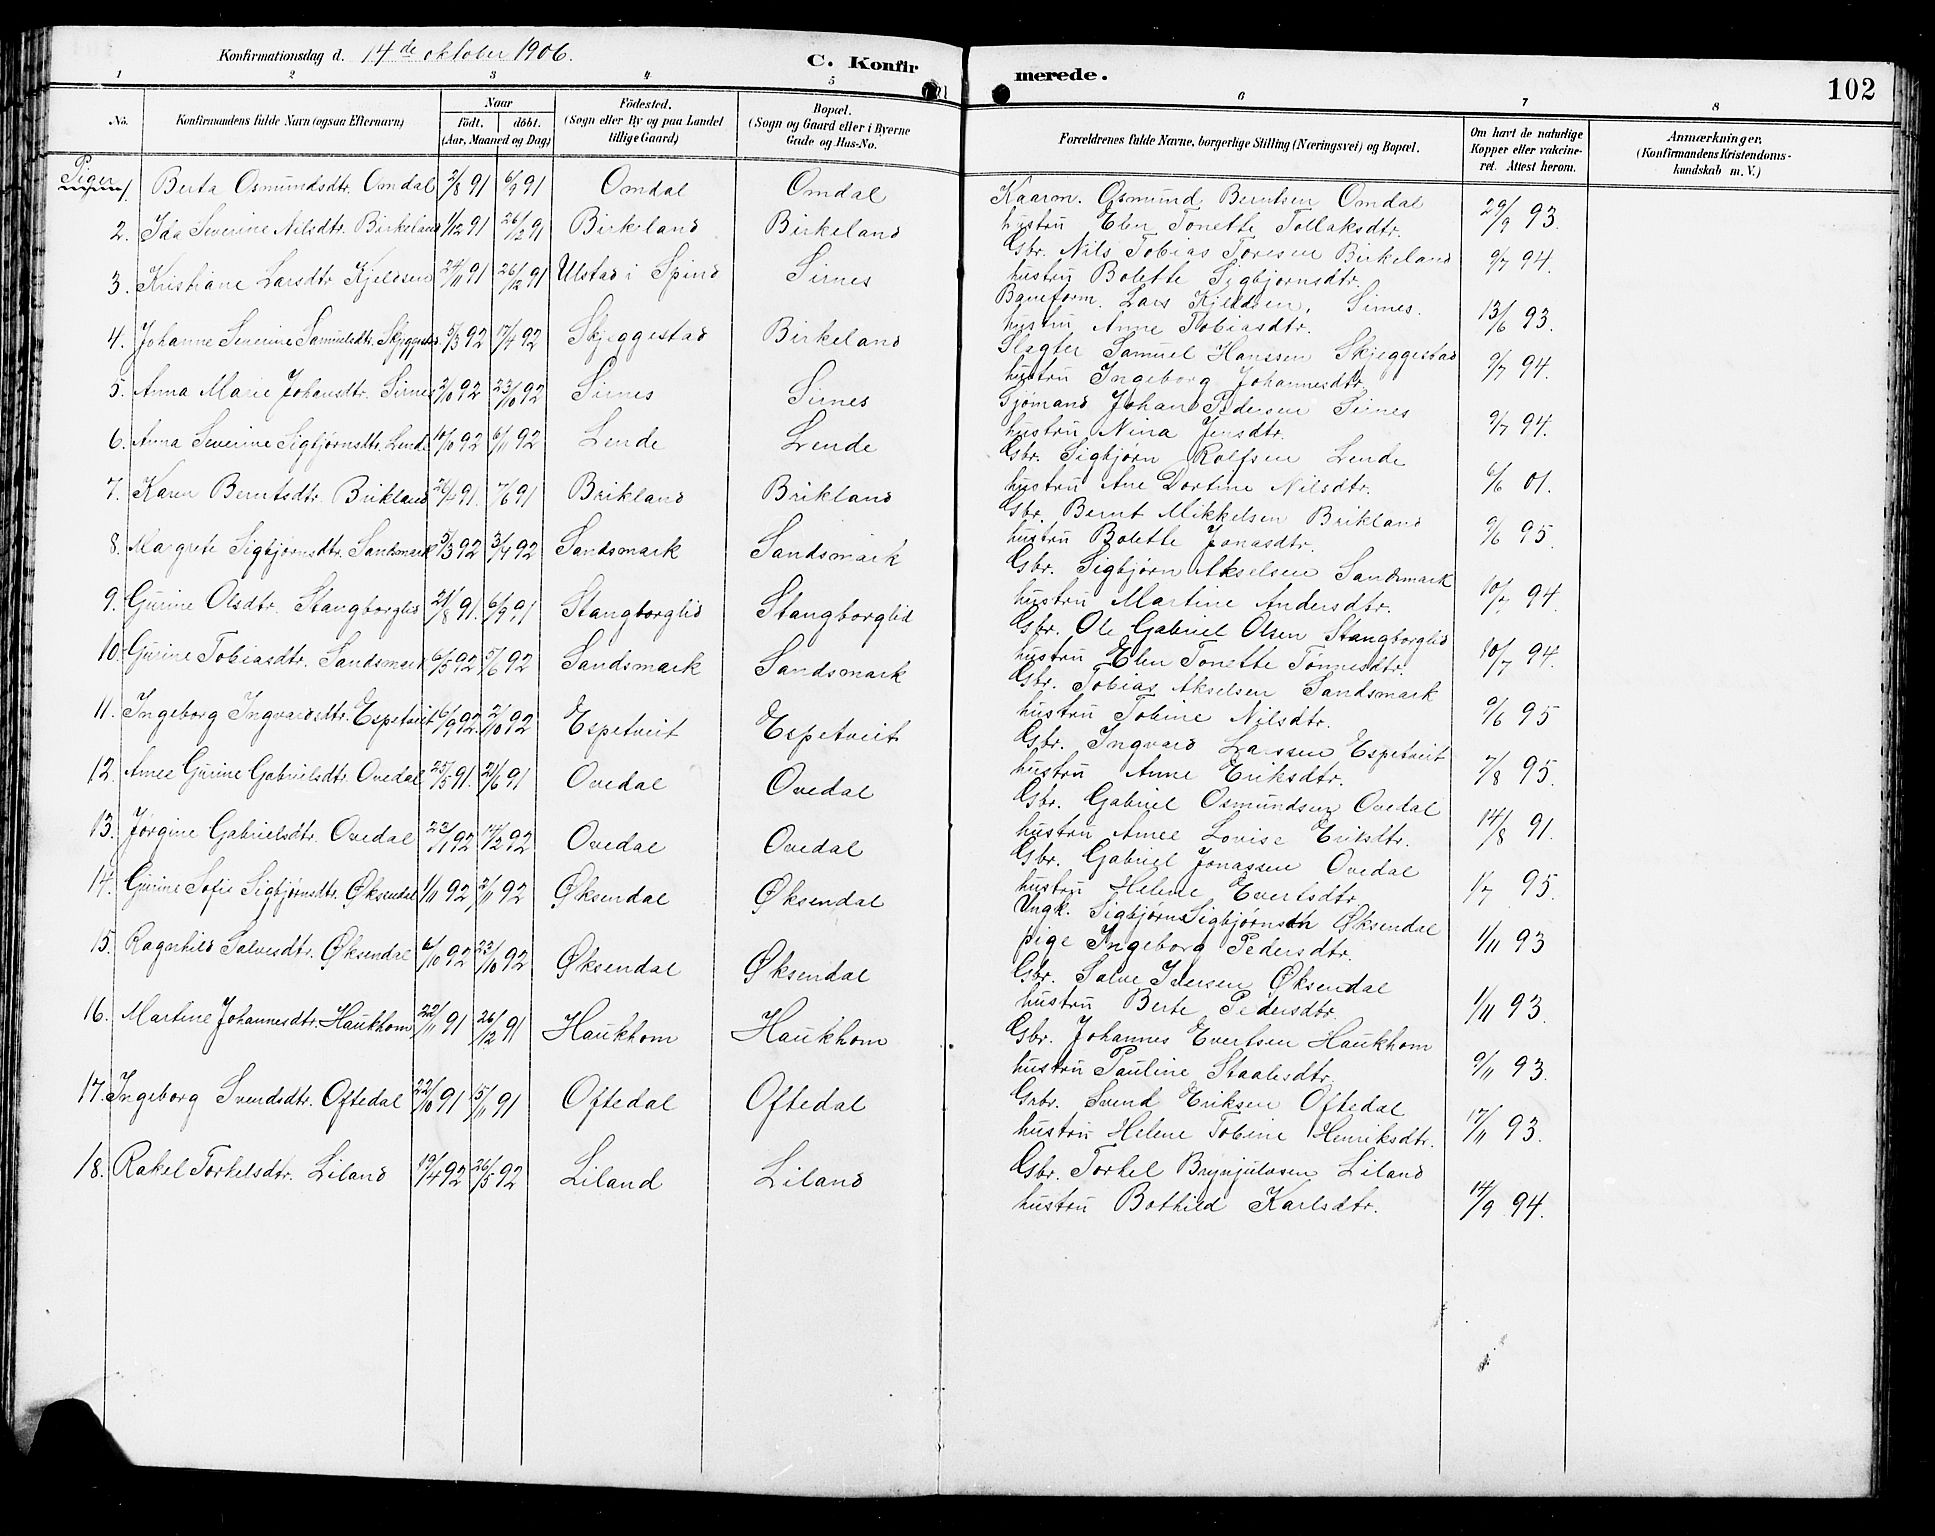 Konfirmationsdag d. 14de oktober 1906.
C. Konfirmerede.
102
1 2 3 4 5 6 7 8
No. Konfirmandens fulde Navn (ogsaa Efternavn) Naar Födt. döbt. (Aar, Maaned og Dag) Födested. (Sogn eller By og paa Landet tillige Gaard) Bopæl. (Sogn og Gaard eller i Byerne Gade og Hus-No. Forældrenes fulde Navne, borgerlige Stilling (Næringsvei) og Bopæl. Om havt de naturlige Kopper eller vakcineret. Attest herom. Anmærkninger. (Konfirmandens Kristendomskundskab m. V.)
Piger
1. Berta Osmundsdtr. Omdal 2/8 91 6/9 91 Omdal Omdal Kaarm. Osmund Berntsen Omdal
hustru Elen Tonette Tollaksdtr. 29/9 93.
2. Ida Severine Nilsdtr. Birkeland 1/12 91 26/12 91 Birkeland Birkeland Gbr. Nils Tobias Toresen Birkeland
hustru Bolette Sigbjørnsdtr. 9/7 94.
3. Kristiane Larsdtr Kjeldsen 24/11 91 26/12 91 Ulstad i Spind Sirnes Baneform. Lars Kjeldsen, Sirnes.
hustru Anne Tobiasdtr. 13/6 93.
4. Johanne Severine Samuelsdtr. Skjeggestad 5/3 92 17/4 92 Skjeggestad Birkeland Slagter Samuel Hanssen Skjeggestad
hustru Ingeborg Johannesdtr. 9/7 94.
5. Anna Marie Johansdtr. Sirnes 2/10 92 23/10 92 Sirnes Sirnes Sjømand Johan Pedersen Sirnes
hustru Nina Jensdtr. 9/7 94.
6. Anna Severine Sigbjørnsdtr. Lende 10/10 92 6/11 92 Lende Lende Gbr. Sigbjørn Rolfsen Lende
hustru Ane Dortine Nilsdtr. 6/6 01.
7. Karen Berntsdtr. Brikland 26/4 91. 7/6 91 Brikland Brikland Gbr. Bernt Mikkelsen Brikland
hustru Bolette Jonasdtr. 9/6 95.
8. Margrete Sigbjørnsdtr. Sandsmark 5/3 92 3/4 92 Sandsmark Sandsmark Gbr. Sigbjørn Akselsen Sandsmark
hustru Martine Andersdtr. 10/7 94.
9. Gurine Olsdtr. Stangborglid 21/8 91. 6/9 91 Stangborglid Stangborglid Gbr. Ole Gabriel Olsen Stangborglid
hustru Elen Tonette Tønnesdtr. 10/7 94.
10. Gurine Tobiasdtr. Sandsmark 6/5 92 5/6 92 Sandsmark Sandsmark Gbr. Tobias Akselsen Sandsmark
hustru Tobine Nilsdtr. 9/6 95
11. Ingeborg Ingvardsdtr. Espetveit 6/9 92. 2/10 92 Espetveit Espetveit Gbr. Ingvard Larssen Espetveit
hustru Anne Eriksdtr. 7/8 95.
12. Amee Gurine Gabrielsdtr. Ovedal 25/5 91. 21/6 91 Ovedal Ovedal Gbr. Gabriel Osmundsen Ovedal
hustru Amee Lovise Eriksdtr. 14/8 91.
13. Jørgine Gabrielsdtr. Ovedal 23/1 92 14/2 92 Ovedal Ovedal Gbr. Gabriel Jonassen Ovedal
hustru Helene Evertsdtr. 1/7 95.
14. Gurine Sofie Sigbjørnsdtr. Øksendal 1/11 92 2/11 92 Øksendal Øksendal Ungk. Sigbjørn Sigbjørnsen Øksendal
pige Ingeborg Pedersdtr. 1/11 93
15. Ragnhild Salvesdtr. Øksendal 6/10 92 23/10 92 Øksendal Øksendal Gbr. Salve Idersen Øksendal
hustru Berte Pedersdtr. 1/11 93.
16. Martine Johannesdtr. Haukhom 22/11 91 26/12 91 Haukhom Haukhom Gbr. Johannes Evertsen Haukhom
hustru Pauline Staalesdtr. 9/11 93.
17. Ingeborg Svendsdtr. Oftedal 22/10 91 15/11 91 Oftedal Oftedal Gbr. Svend Eriksen Oftedal
hustru Helene Tobine Henriksdtr. 17/11 93.
18. Rakel Torkelsdtr. Liland 19/4 92 26/5 92 Liland Liland Gbr. Torkel Brynjulvsen Liland
hustru Bothild Karlsdtr. 14/9 94.